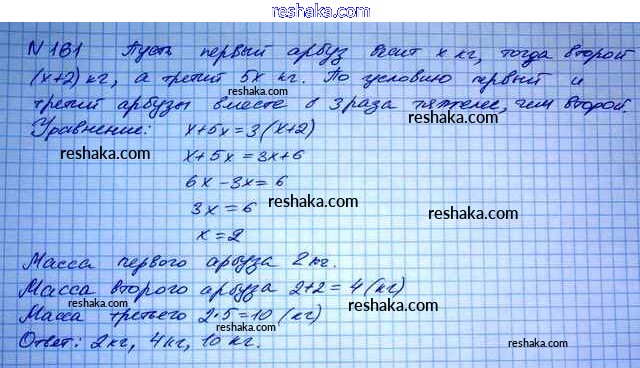 reshaka.com
N 161 Пусть первый арбуз весит x кг, тогда второй
(x+2) кг, а третий 5x кг. По условию первый и
третий арбузы вместе в 3 раза тяжелее, чем второй.
reshaka.com
Уравнение: x+5x=3(x+2)
reshaka.com
reshaka.com
x+5x=3x+6
6x-3x=6
reshaka.com
3x=6
reshaka.com
x=2
Масса первого арбуза 2 кг.
Масса второго арбуза 2+2=4 (кг)
reshaka.com
reshaka.com
Масса третьего 2·5=10 (кг)
Ответ: 2 кг, 4 кг, 10 кг.
reshaka.com
reshaka.com